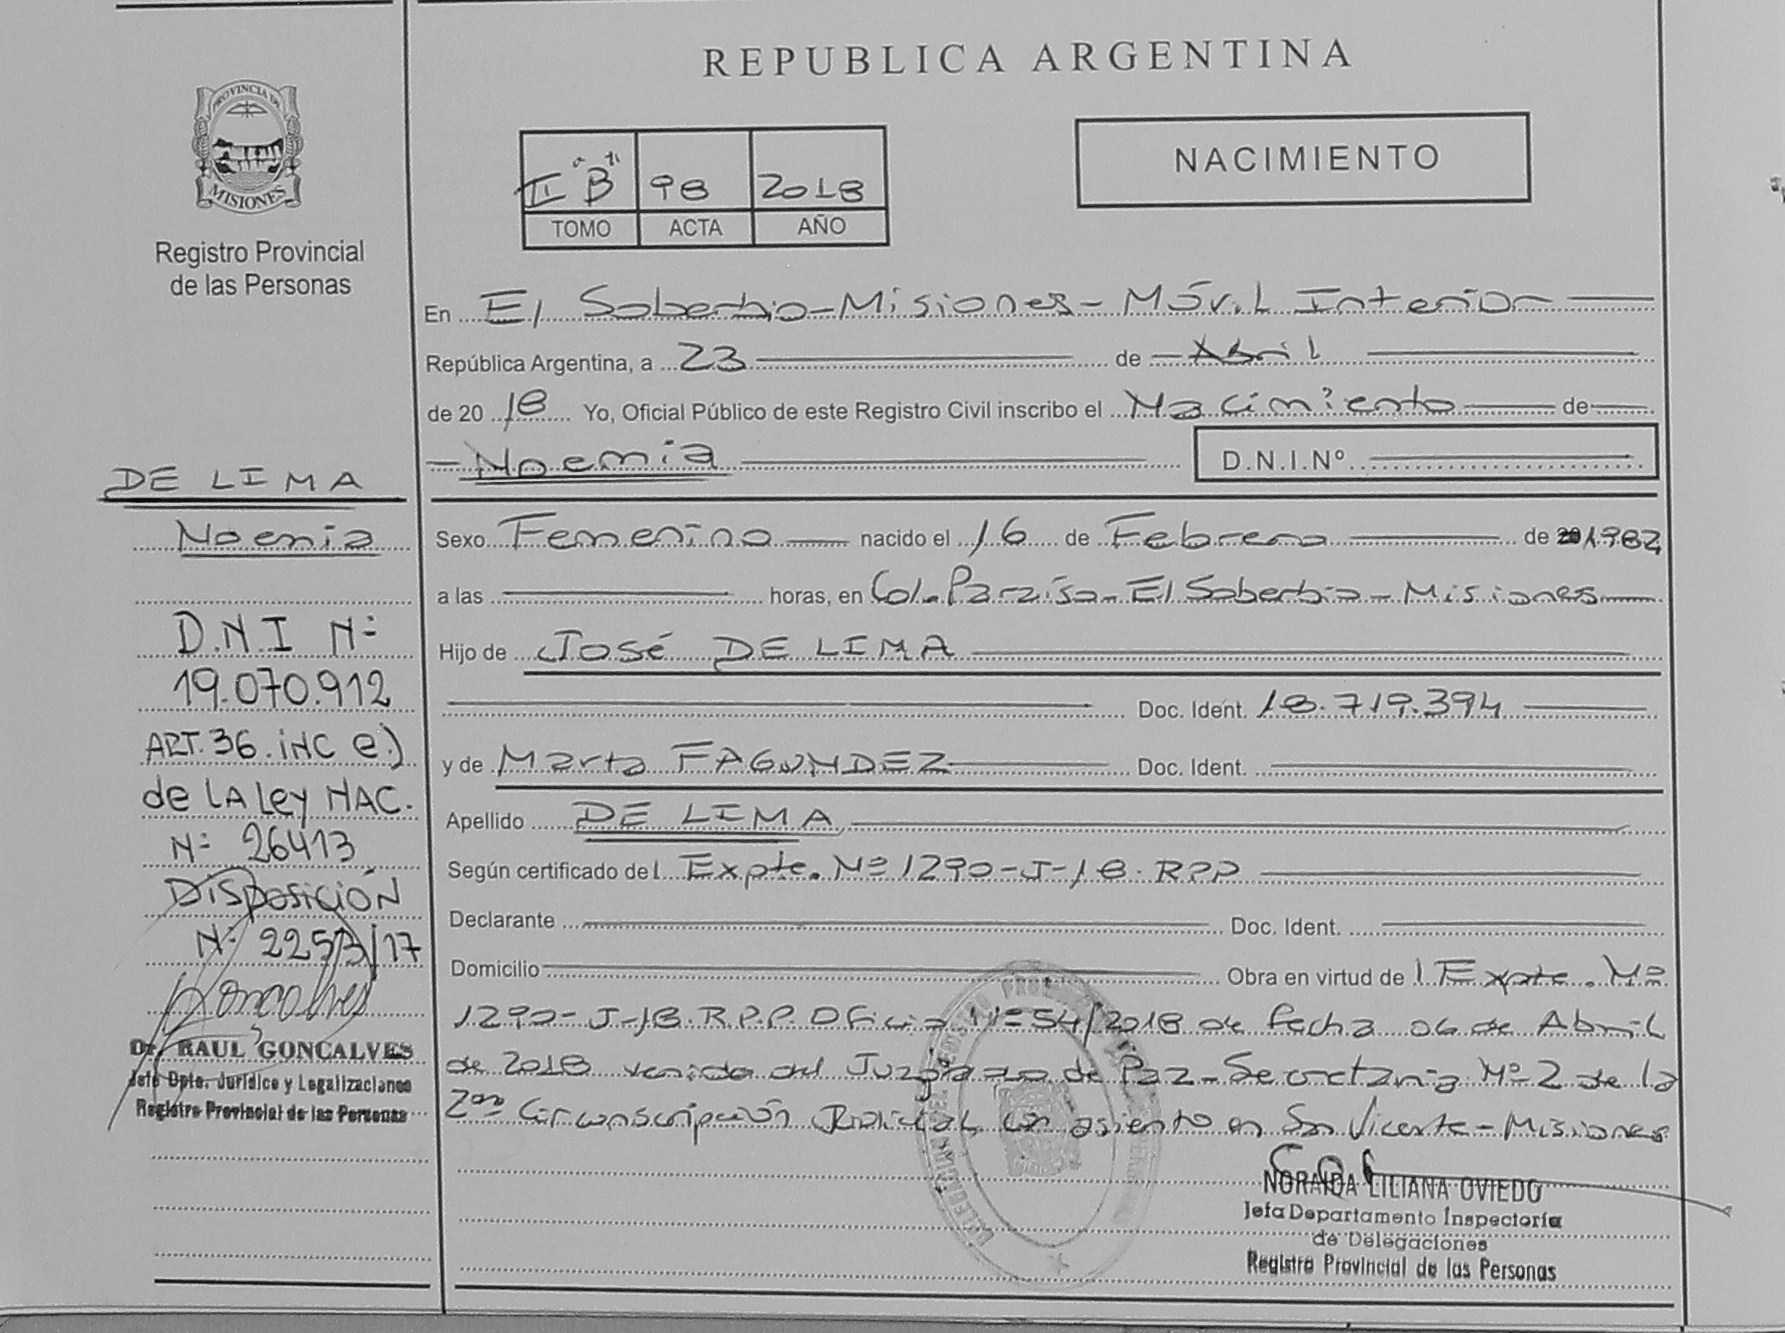 PROVINCIA DE
MISIONES
Registro Provincial
de las Personas
DE LIMA
Noemia
D.N.I Nº
19.070.912
ART. 36. iNC e.)
de LA Ley NAC.
Nº 26413
DISPOSICIÓN
Nº 2253/17
Goncalves
Dr. RAUL GONCALVES
Jefe Dpto. Jurídico y Legalizaciones
Registro Provincial de las Personas
REPUBLICA ARGENTINA
II "B" 98 2018
TOMO ACTA AÑO
NACIMIENTO
En El Soberbio - Misiones - Móvil Interior
República Argentina, a 23 de Abril
de 20 18 Yo, Oficial Público de este Registro Civil inscribo el Nacimiento de
Noemia D.N.I.Nº
Sexo Femenino nacido el 16 de Febrero de 20 1982
a las horas, en Col. Paraíso - El Soberbio - Misiones
Hijo de José DE LIMA
Doc. Ident. 18.719.394
y de Marta FAGUNDEZ Doc. Ident.
Apellido DE LIMA
Según certificado del Expte. Nº 1290-J-18. RPP
Declarante Doc. Ident.
Domicilio Obra en virtud del Expte. Nº
1290-J-18. R.P.P. Oficio Nº 54/2018 de fecha 06 de Abril
de 2018 venido del Juzgado de Paz - Secretaria Nº 2 de la
2da Circunscripción Judicial, con asiento en San Vicente - Misiones
NORAIDA LILIANA OVIEDO
Jefa Departamento Inspectoría
de Delegaciones
Registro Provincial de las Personas